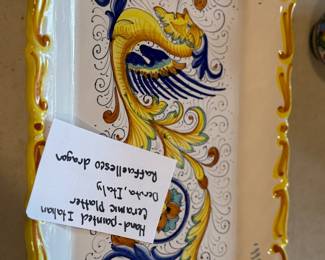 Hand-painted Italian
Ceramic Platter
Deruta, Italy
Raffaellesco dragon